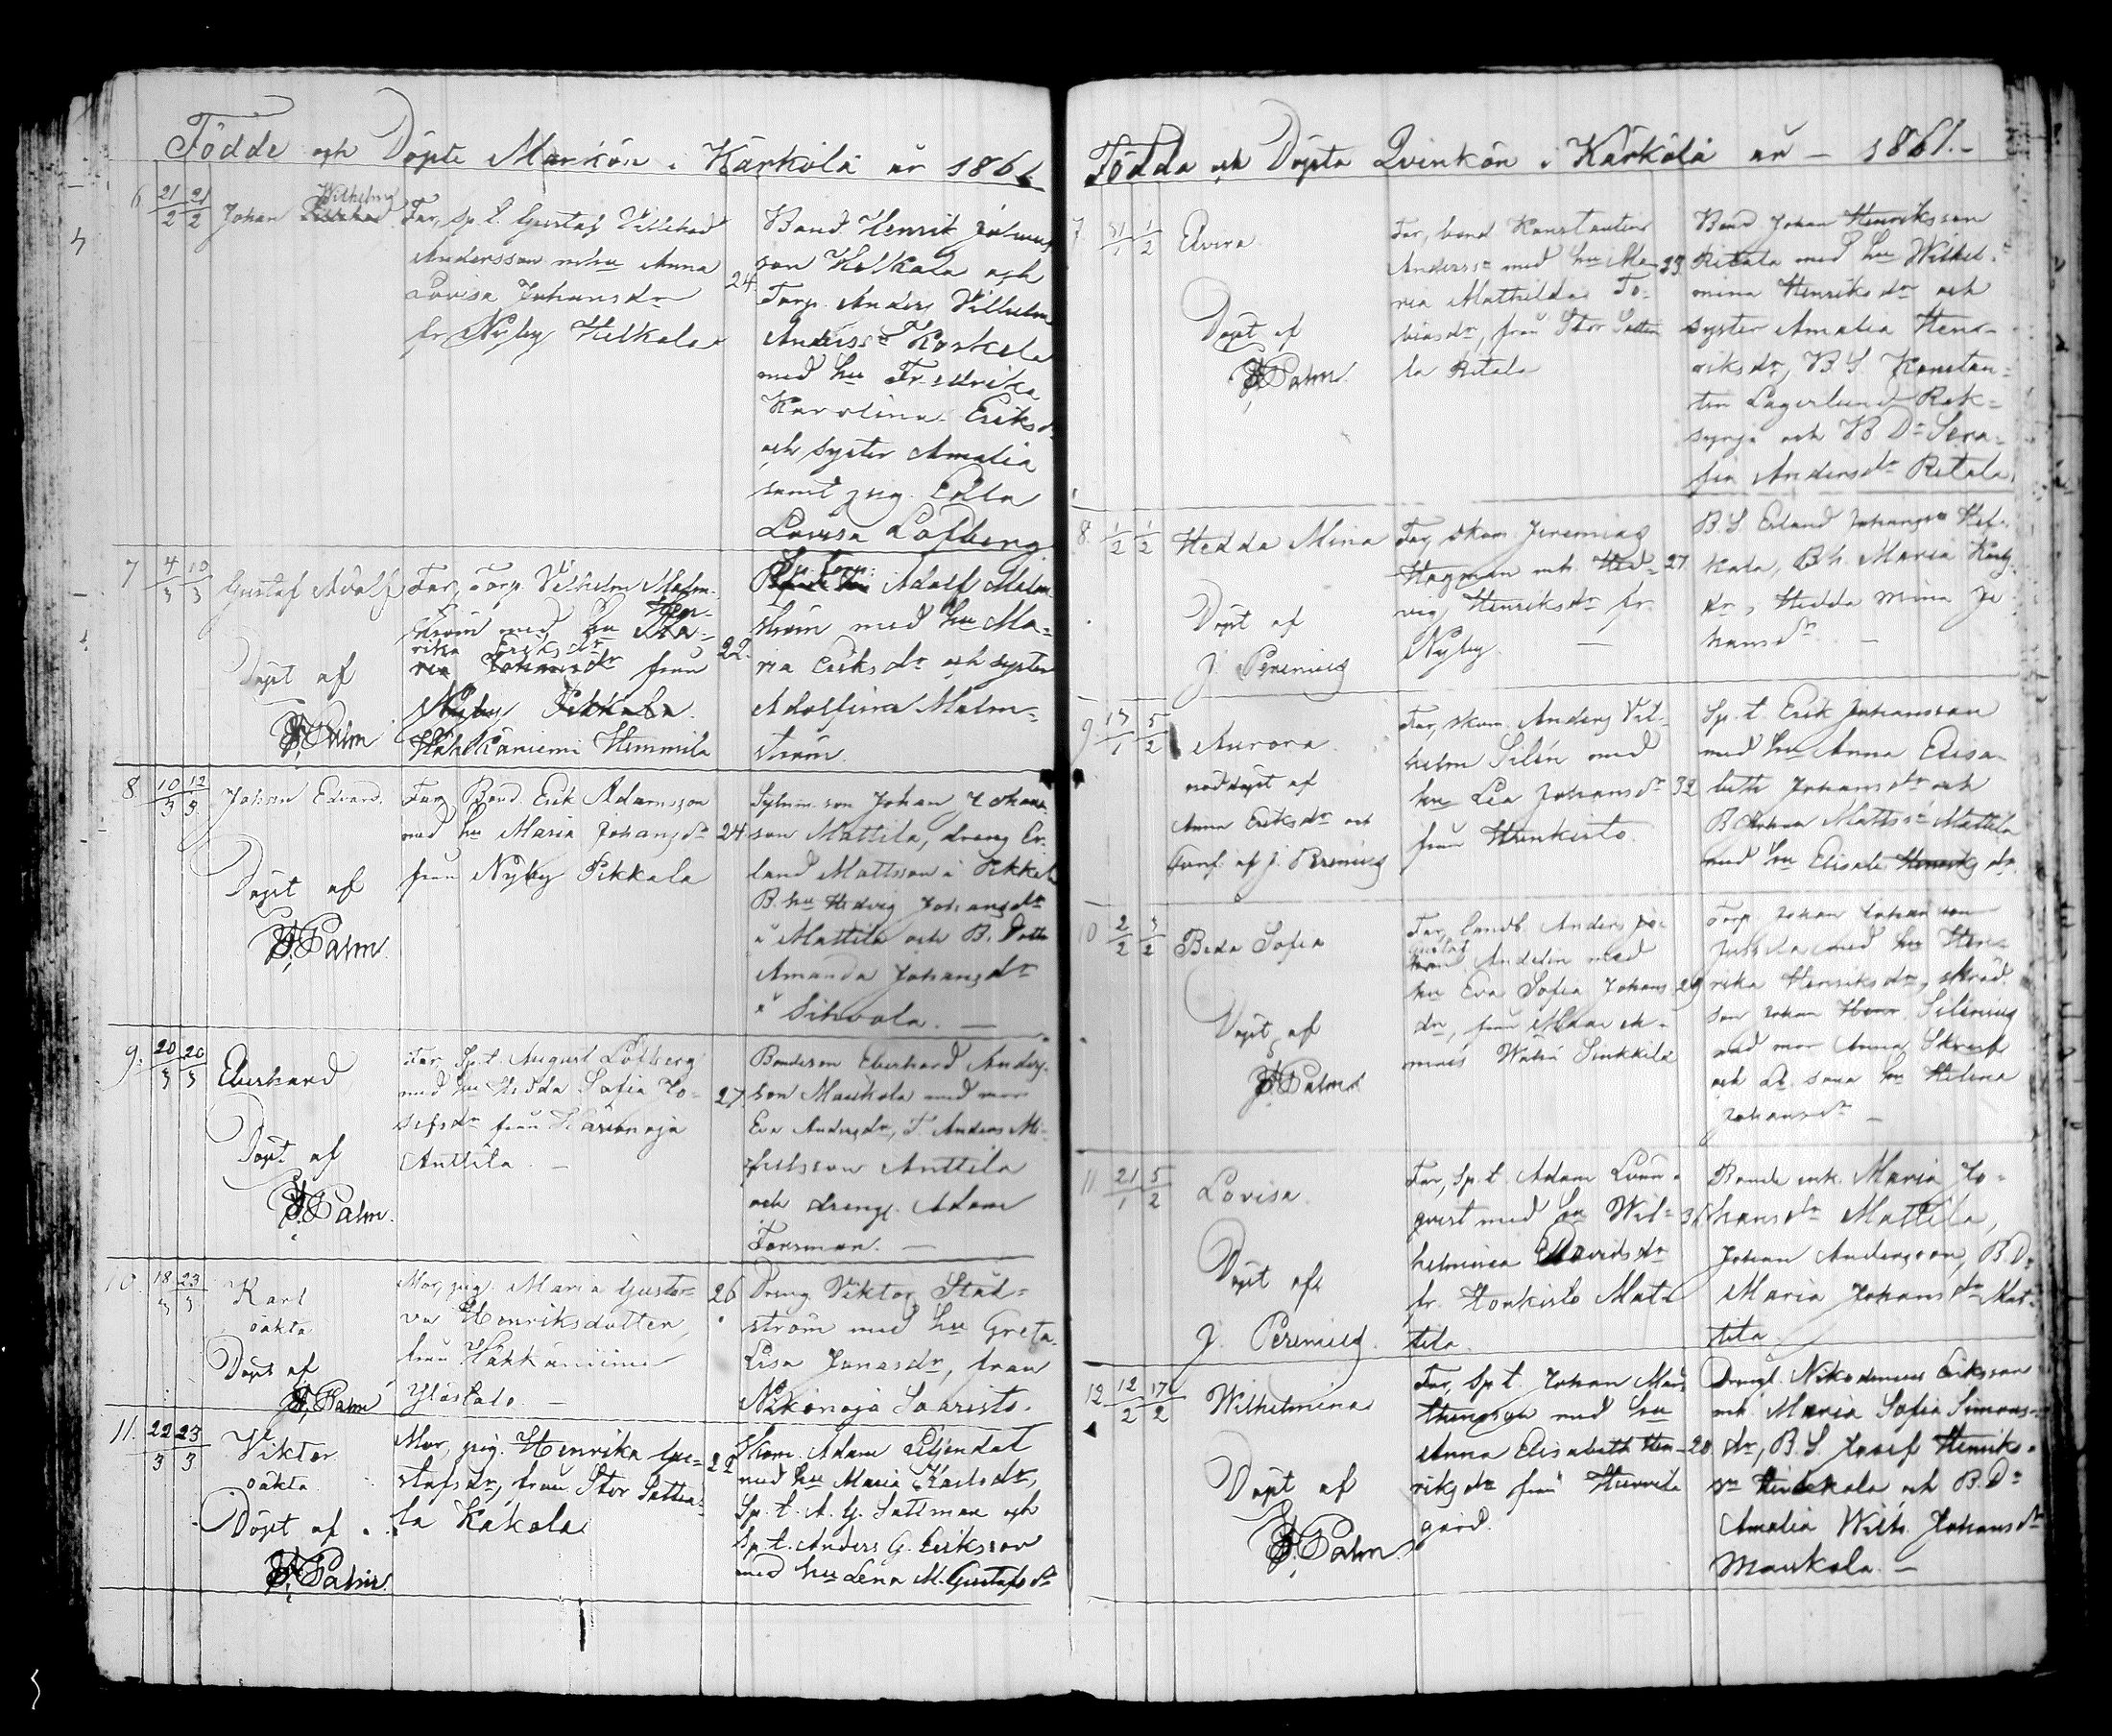 Födde och Döpte Mankön i Kärkölä år 1861
6 21/2 21/2 Johan Wilhelm
Far, Sp. t. Gustaf Villehad
Andersson m hu Anna
Lovisa Johansdr
fr Nyby Helkala
24.
Bond. Henrik Johans
son Helkala och
Torp. Anders Vilhelm
Anderss Koskela
med hu Fredrika
Karolina Eriksdr
och syster Amalia
samt pig. Edla
Lovisa Löfberg
7 4/3 10/3 Gustaf Adolf
Döpt af
Palm
Far, Torp. Vilhelm Malm-
ström med hu Hen-
rika Eriksdr
ria Johansdr från
Nyby Pikkala
Hähkäniemi Hemmila
22.
Sp. torp. Adolf Malm-
ström med hu Ma-
ria Eriksdr och syster
Adolfina Malm-
ström.
8. 10/3 12/3. Johan Edvard.
Döpt af
Palm.
Far, Bond. Erik Adamsson
med hu Maria Johansdr
från Nyby Pikkala
24
Sytnin. son Johan Johans
son Mattila, dreng Er-
land Mattsson i Pikkala
B. hu Hedvig Johansdr
i Mattila och B. Dotter
Amanda Johansdr
i Sihvola. —
9. 20/3 20/3 Eberhard
Döpt af
Palm.
Far, Sp. t. August Löfberg
med hu Hedda Sofia Jo-
sefsdr från Käronoja
Anttila. —
27.
Bondeson Eberhard Anders-
son Maukola med mor
Eva Andersdr, T. Anders Mi-
chelsson Anttila
och drengl. Adam
Forsman. —
10. 18/3 23/3 Karl
oäkta
Döpt af
Palm
Mor, pig. Maria Gusta-
va Henriksdotter,
från Hähkäniemi
Ylöstalo. —
26
Dreng Viktor Stål-
ström med hu Greta
Lisa Jonasdr, från
Nikonoja Saaristo.
11. 22/3 23/3 Viktor
oäkta.
Döpt af
Palm.
Mor, pig. Henrika Gu-
stafsdr, från Stor Sattia-
la Kakola
22
Skom. Adam Liljendal
med hu Maria Karlsdr,
Sp. t. A. G. Sattman och
Sp. t. Anders G. Eriksson
med hu Lena M. Gustafsdr
Födda och Döpta Qvinkön i Kärkölä år — 1861.-
7. 31/1 1/2 Elvira.
Döpt af
Palm.
Far, bond. Konstantin
Anderss med hu Ma-
ria Mathilda To-
biasdr, från Stor Sattia
la Ritala
23
Bond Johan Henriksson
Ritala med hu Wilhel-
mina Henriksdr och
syster Amalia Hen-
riksdr, B. S. Konstan-
tin Lagerlund Rek-
syrjä och B Dr Sera-
fia Andersdr Ritala.
8. 1/2 1/2 Hedda Mina
Döpt af
J. Perenius
Far, skom. Jeremias
Hagman mh Hed-
vig Henriksdr fr.
Nyby. —
27
B. S Erland Johansson Hel-
kala, B h. Maria Karls
dr, Hedda Mina Jo
hansdr. —
9. 5/2 Aurora.
nöddöpt af
Anna Eriksdr och
Conf. af J. Perenius
Far, skom. Anders Vil-
helm Silén med
hu Lea Johansdr
från Honkisto
32
Sp. t. Erik Johansson
med hu Anna Elisa-
beth Johansdr och
B Johan Mattss Mattila
med hu Elisab. Henriksdr.
10 2/2 3/2 Beda Sofia
Döpt af
Palm
Far, landb. Anders
Gustaf
Andelin med
hu Eva Sofia Johans
dr, från
29
Torp Johan Johansson
Jussila med hu Hen-
rika Henriksdr, skräd.
son Johan Silenius
med mor Anna
och hu Helena
Johansdr —
11 21/1 5/2 Lovisa.
Döpt af
J. Perenius.
Far, Sp. t. Adam Lind-
qvist med hu Wil-
helmina Davidsdr
fr. Honkisto Mat-
tila.
31
Bonde enk. Maria Jo-
hansdr Mattila,
Johan Andersson, B. Dr
Maria Johansdr Mat-
tila.
12. 12/2 17/2 Wilhelmina
Döpt af
Palm.
Far, Sp t. Johan Mat-
thiasson med hu
Anna Elisabeth Hen-
riksdr från Hemmila
gård.
20
Drengl. Nikodemus Eriksson
mh. Maria Sofia Simons-
dr, B. S. Josef Henriks-
sn Heikkola och B. Dr
Amalia Wilh. Johansdr
Maukola. —